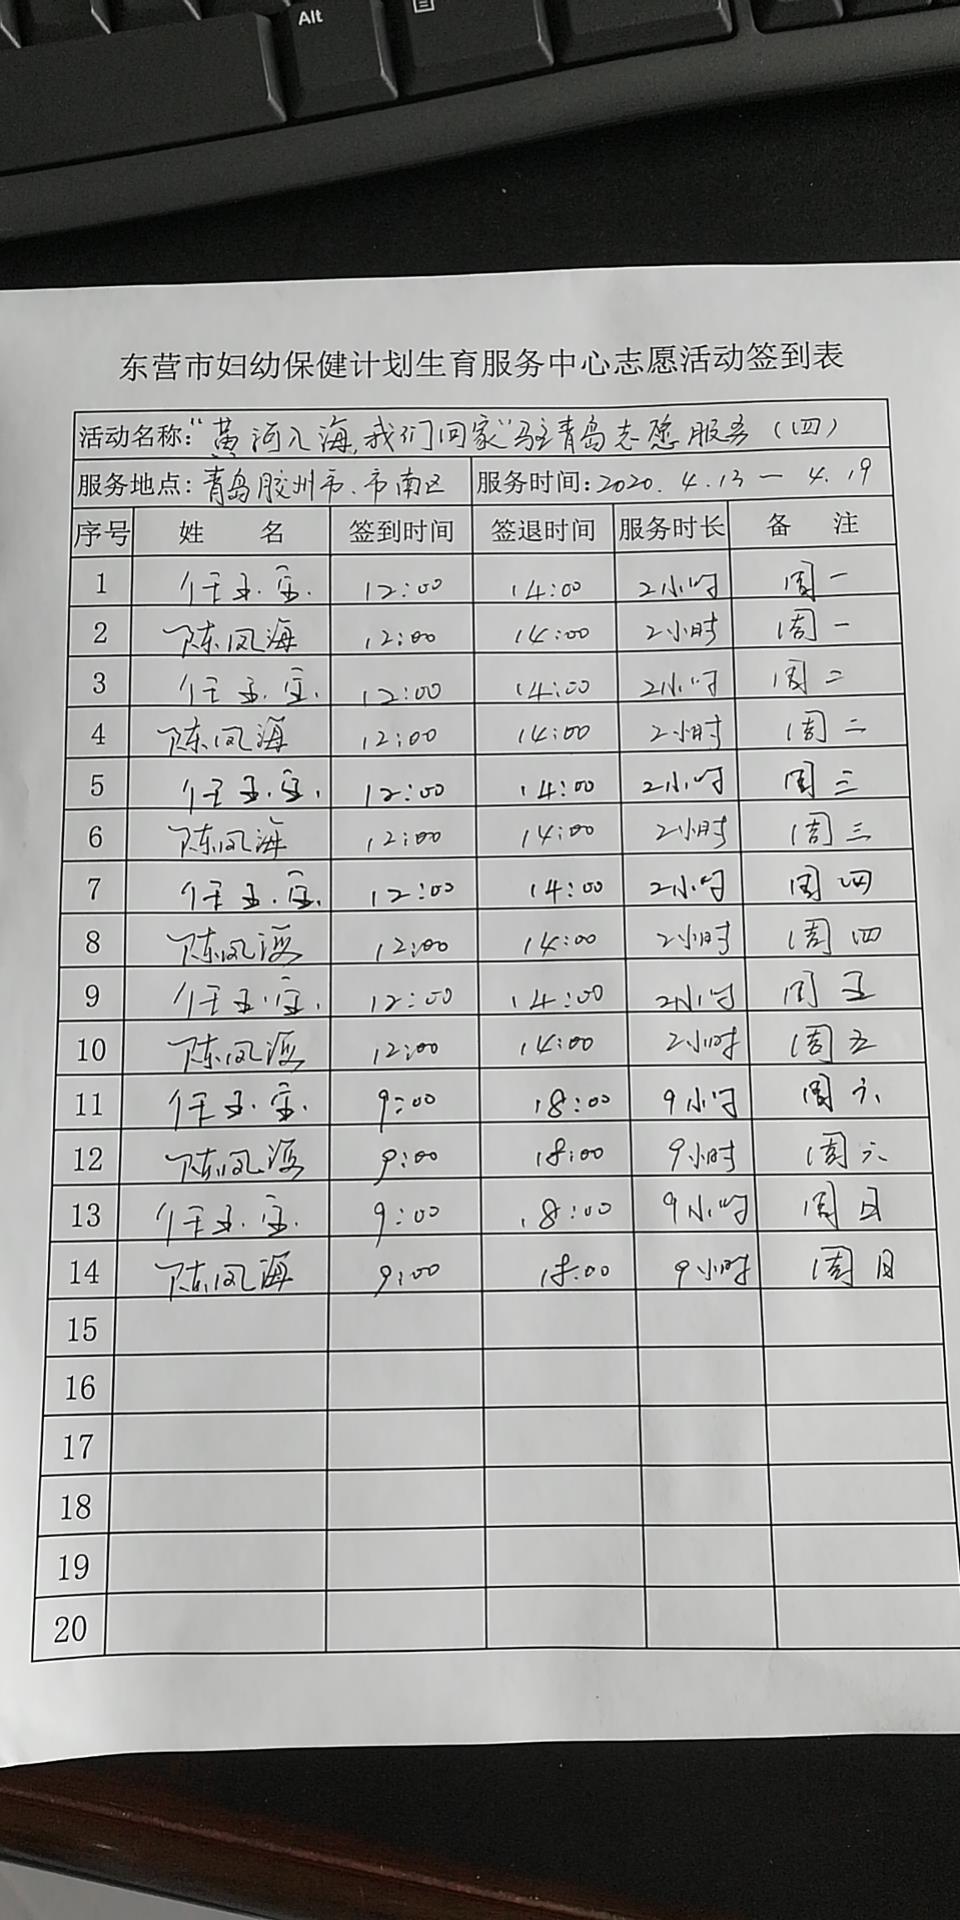 Alt
东营市妇幼保健计划生育服务中心志愿活动签到表
活动名称:“黄河入海,我们回家”驻青岛志愿服务(四)
服务地点:青岛胶州市、市南区 服务时间:2020.4.13—4.19
序号 姓 名 签到时间 签退时间 服务时长 备 注
1 任玉宝 12:00 14:00 2小时 周一
2 陈凤海 12:00 14:00 2小时 周一
3 任玉宝 12:00 14:00 2小时 周二
4 陈凤海 12:00 14:00 2小时 周二
5 任玉宝 12:00 14:00 2小时 周三
6 陈凤海 12:00 14:00 2小时 周三
7 任玉宝 12:00 14:00 2小时 周四
8 陈凤海 12:00 14:00 2小时 周四
9 任玉宝 12:00 14:00 2小时 周五
10 陈凤海 12:00 14:00 2小时 周五
11 任玉宝 9:00 18:00 9小时 周六
12 陈凤海 9:00 18:00 9小时 周六
13 任玉宝 9:00 18:00 9小时 周日
14 陈凤海 9:00 18:00 9小时 周日
15
16
17
18
19
20